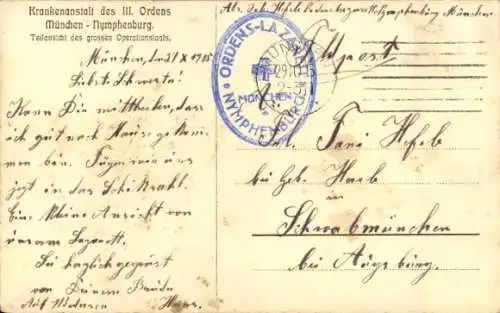 Krankenanstalt des III. Ordens
München - Nymphenburg.
Teilansicht des grossen Operationssaals.
München, den 21 X 1915
Liebste Schwester!
Kann Dir mitteilen, daß
ich gut nach Hause gekom
men bin.
jetzt in das
Eine kleine Ansicht von
unserm Lazarett.
Sei herzlich gegrüßt
von Deinem Bruder
Auf Wiedersehen Hans.
Abs. Ordenslazarett Nymphenburg München
Feldpost
ORDENS-LAZARETT
MÜNCHEN
NYMPHENBURG
Frl. Fani
bei Geb. Haab
in
Schwabmünchen
bei Augsburg.